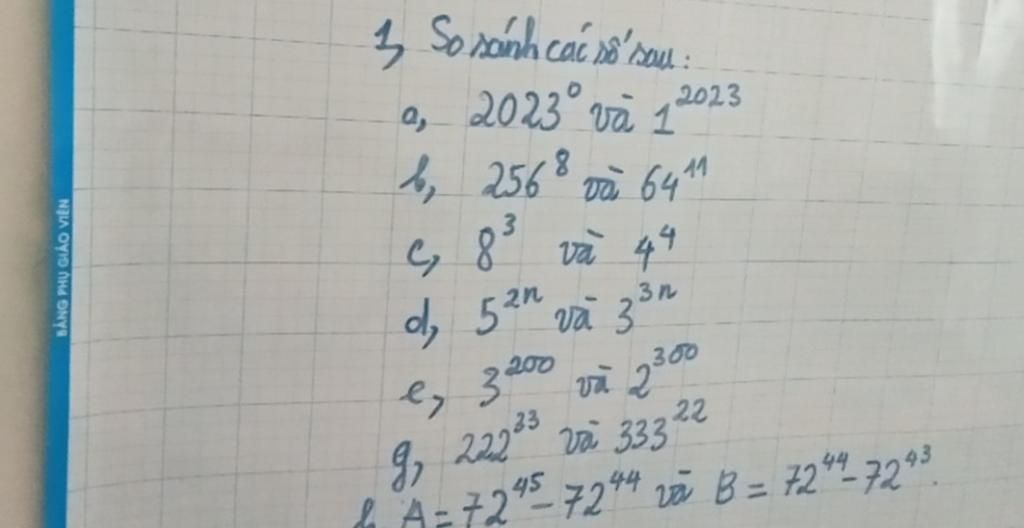 1, So sánh các số sau:
a, 2023⁰ và 1²⁰²³
b, 256⁸ và 64¹¹
c, 8³ và 4⁴
d, 5²ⁿ và 3³ⁿ
e, 3²⁰⁰ và 2³⁰⁰
g, 222³³ và 333²²
h, A = 72⁴⁵ - 72⁴⁴ và B = 72⁴⁴ - 72⁴³.
BẢNG PHỤ GIÁO VIÊN